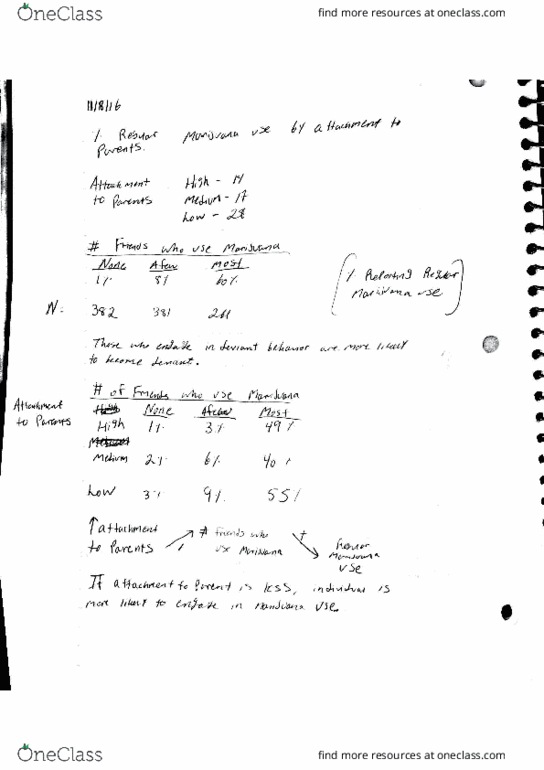 OneClass
find more resources at oneclass.com
11/8/16
% Regular Marijuana use by attachment to
Parents.
Attachment High - 14
to Parents Medium - 17
Low - 28
# Friends who use Marijuana
None A few Most
1% 8% 60%
(% Reporting Regular
Marijuana use)
N: 382 381
Those who engage in deviant behavior are more likely
to become deviant.
# of Friends who use Marijuana
Attachment
to Parents
None A few Most
High 1% 3% 49%
Medium 2% 6% 40%
Low 3% 9% 55%
↑ attachment
to Parents
# friends who
use Marijuana
+
Regular
Marijuana
use
If attachment to Parent is less, individual is
more likely to engage in Marijuana use.
OneClass
find more resources at oneclass.com